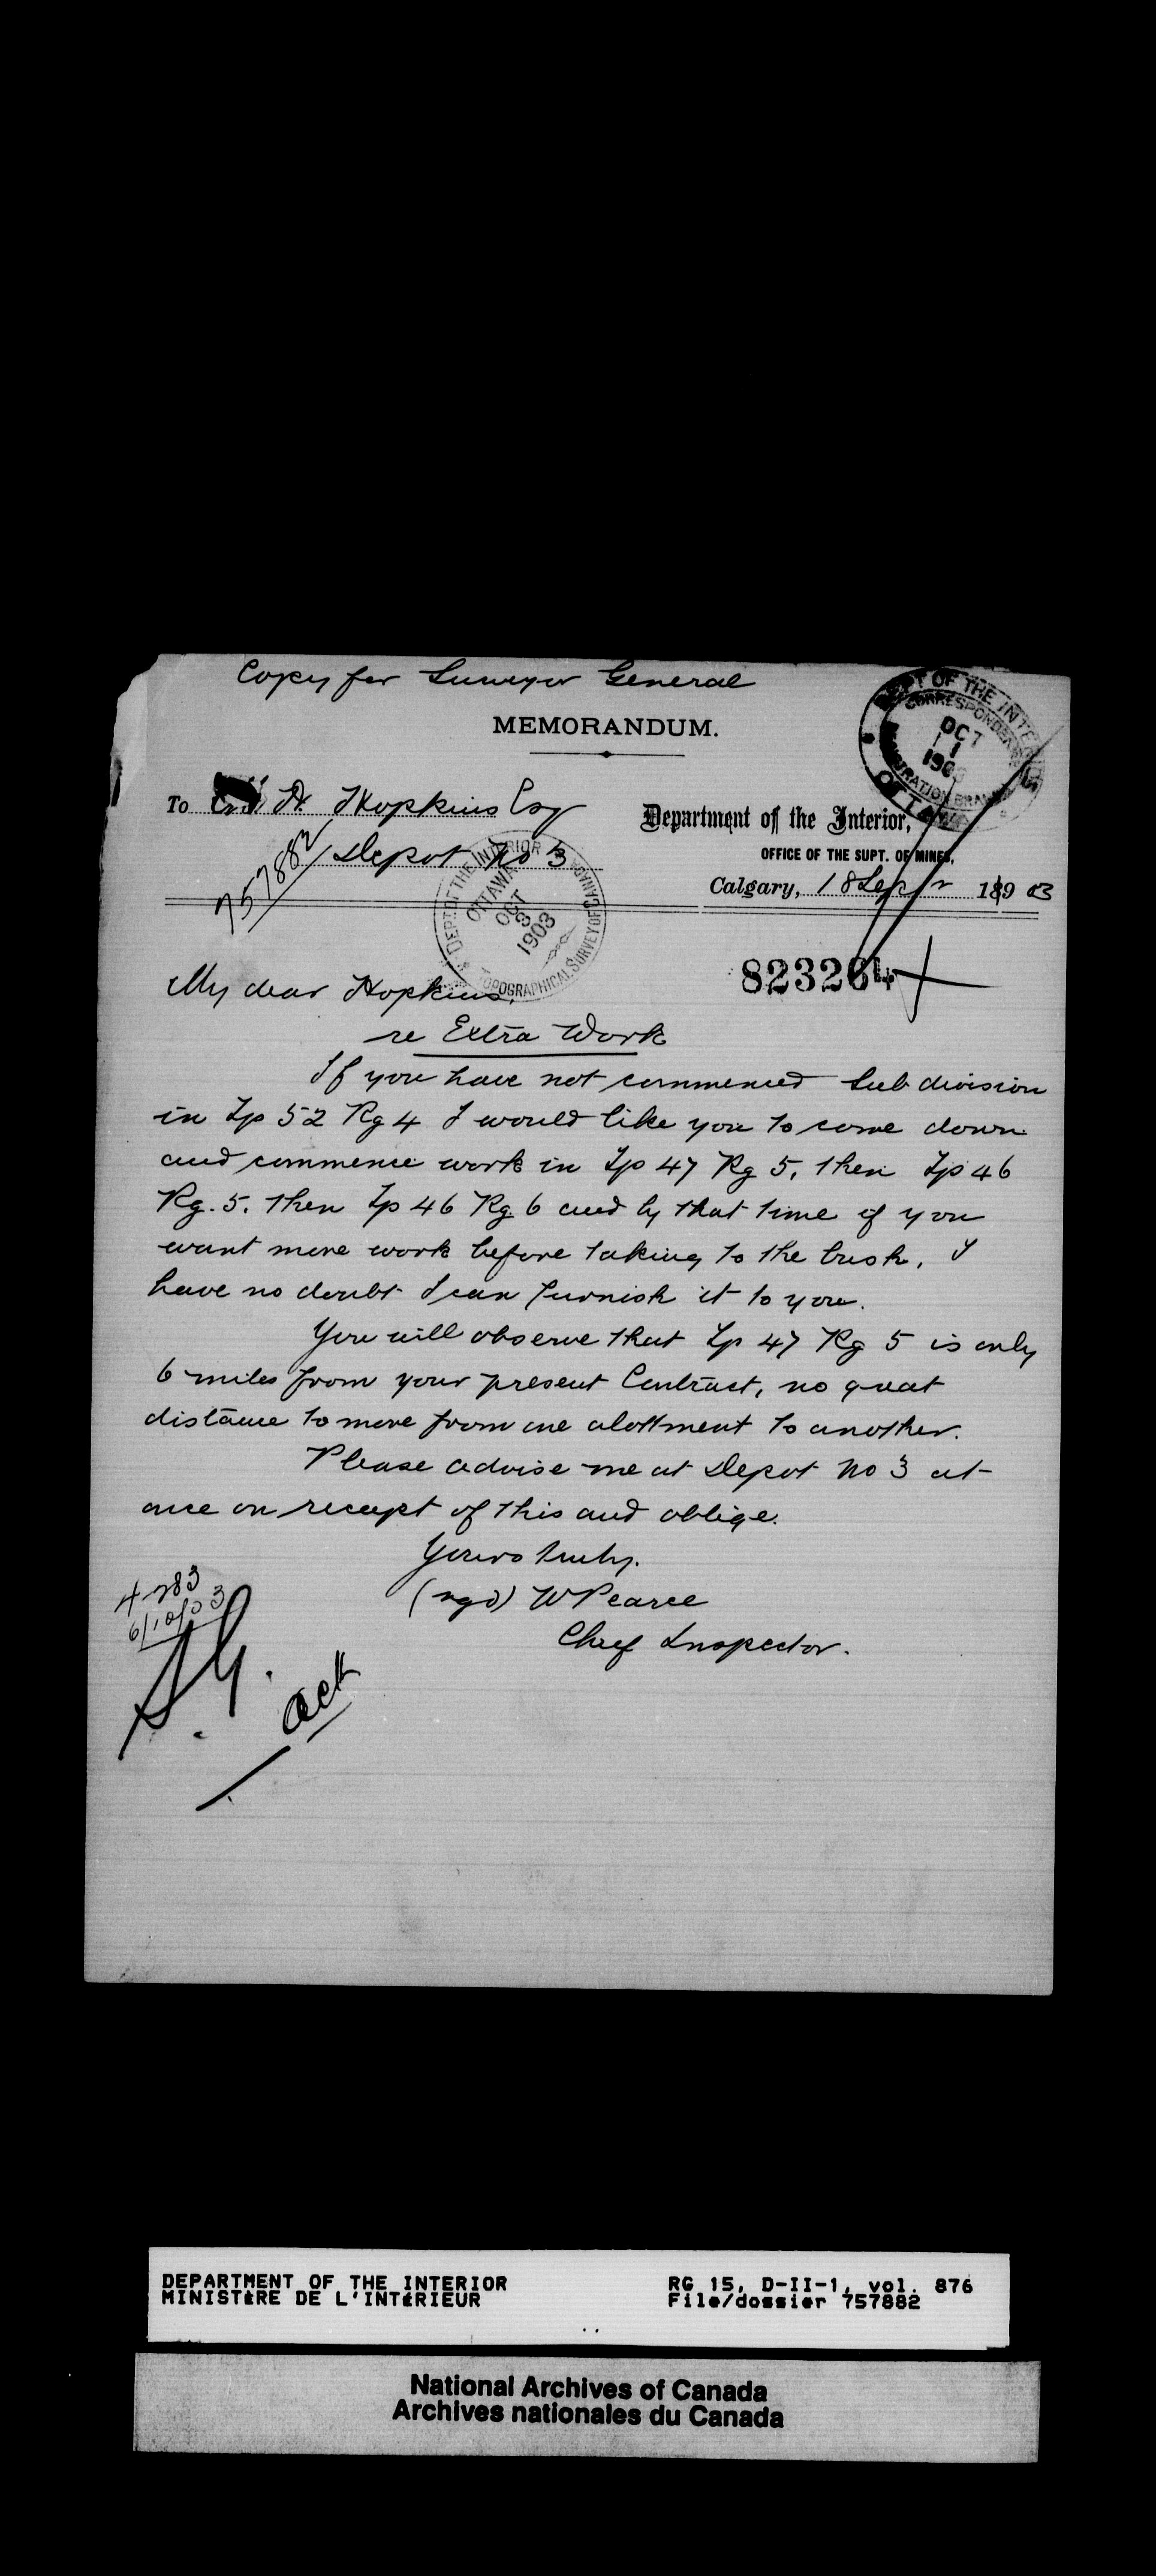 Copy for Surveyor General
MEMORANDUM.
To H. Hopkins Esq
Depot No 3
757882
Department of the Interior,
OFFICE OF THE SUPT. OF MINES,
Calgary, 18 Sept 1903
DEPT OF THE INTERIOR
CORRESPONDENCE
OCT 1 190
REGISTRATION BRANCH
OTTAWA
DEPT. OF THE INTERIOR
OTTAWA
OCT
3
1903
TOPOGRAPHICAL SURVEY OF CANADA
823264
My dear Hopkins,
re Extra Work
If you have not commenced Sub division
in Tp 52 Rg 4 I would like you to come down
and commence work in Tp 47 Rg 5, then Tp 46
Rg. 5. then Tp 46 Rg 6 and by that time if you
want more work before taking to the bush, I
have no doubt I can furnish it to you.
You will observe that Tp 47 Rg 5 is only
6 miles from your present Contract, no great
distance to move from one alottment to another.
Please advise me at Depot No 3 at
once on receipt of this and oblige.
Yours truly.
(sgd) W Pearce
Chief Inspector.
4283
6/10/03
S.G.
ack
DEPARTMENT OF THE INTERIOR
MINISTÈRE DE L'INTÉRIEUR
RG 15, D-II-1, vol. 876
File/dossier 757882
National Archives of Canada
Archives nationales du Canada